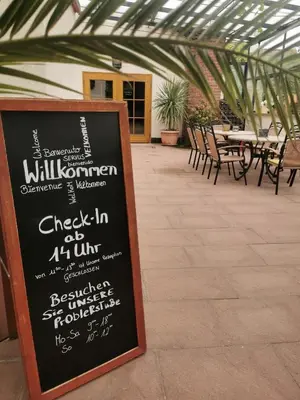 Welcome
Benvenuto
SERVUS
bienvenido
Willkommen
Willkommen
Bienvenue
Willkommen
Check-In
ab
14 Uhr
von 11°°-13°° ist unsere Rezeption
GESCHLOSSEN
Besuchen
Sie UNSERE
ProblerStube
Mo-Sa 9-18°°
So 10-12°°